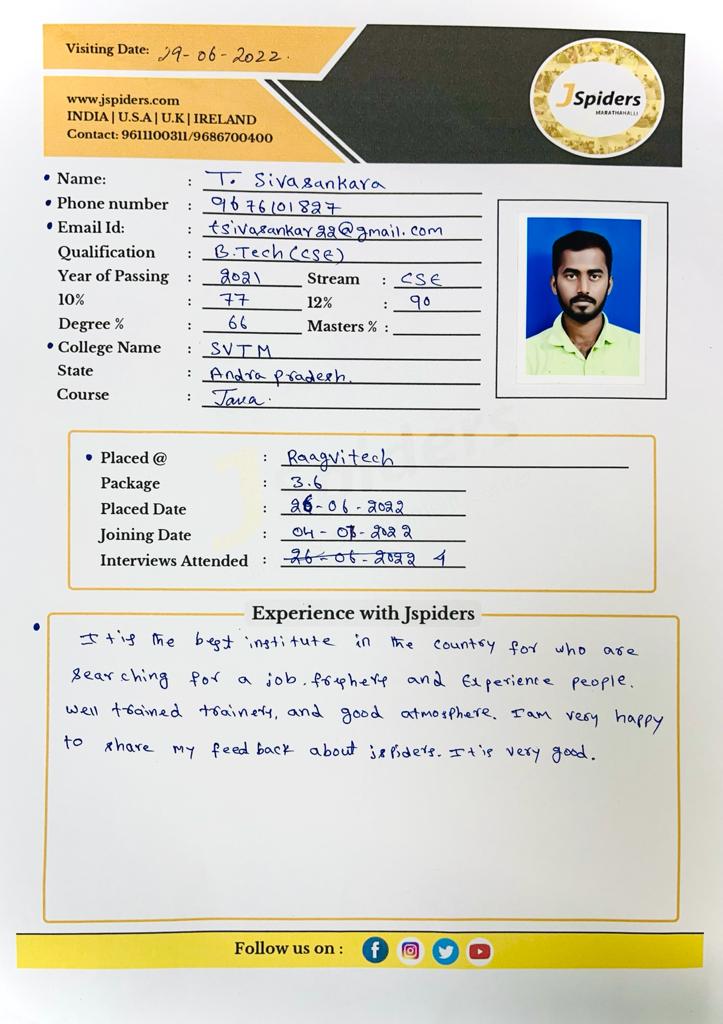 Visiting Date: 29-06-2022.
JSpiders
MARATHAHALLI
www.jspiders.com
INDIA | U.S.A | U.K | IRELAND
Contact: 9611100311/9686700400
• Name: : T. Sivasankara
• Phone number : 9676101827
• Email Id: : tsivasankar22@gmail.com
Qualification : B.Tech (CSE)
Year of Passing : 2021 Stream : CSE
10% : 77 12% : 90
Degree % : 66 Masters % :
• College Name : SVTM
State : Andra pradesh.
Course : Java.
• Placed @ : Raagvitech
Package : 3.6
Placed Date : 26-06-2022
Joining Date : 04-07-2022
Interviews Attended : 26-06-2022 4
Experience with Jspiders
It is the best institute in the country for who are
searching for a job. freshers and Experience people.
Well trained trainers, and good atmosphere. I am very happy
to share my feedback about jspiders. It is very good.
Follow us on :